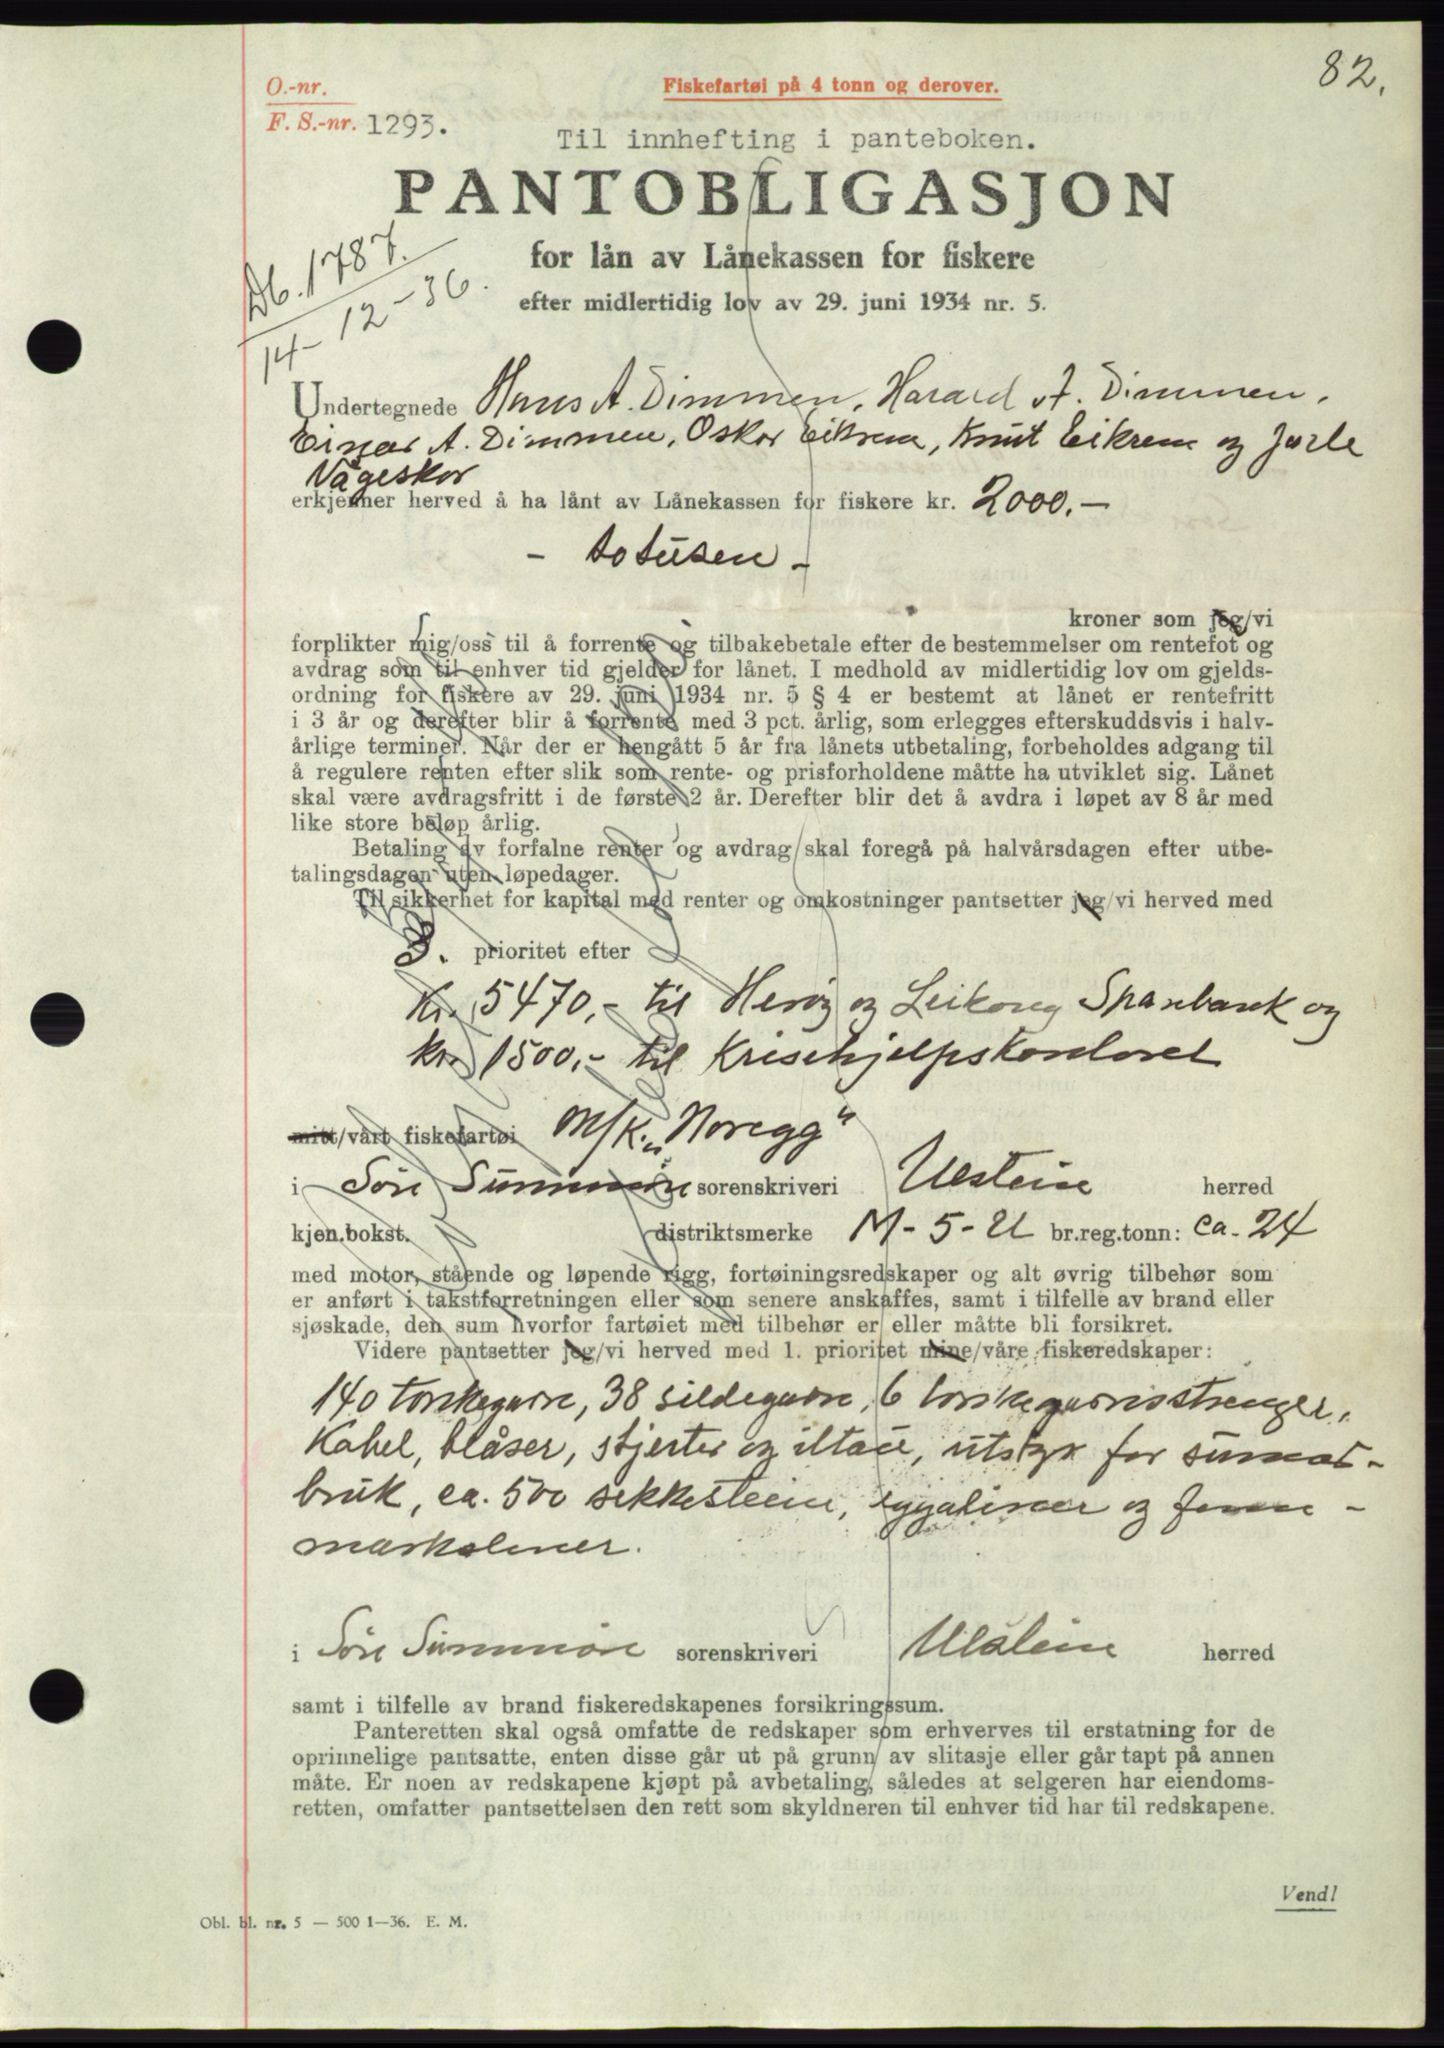 82.
O.-nr.
Fiskefartøi på 4 tonn og derover.
F. S.-nr. 1293.
Til innhefting i panteboken.
PANTOBLIGASJON
for lån av Lånekassen for fiskere
efter midlertidig lov av 29. juni 1934 nr. 5.
Db. 1787.
14-12-36.
Undertegnede Hans A. Dimmen, Harald A. Dimmen,
Einar A. Dimmen, Oskar Eikrem, Knut Eikrem og Jarle
Vågeskor
erkjenner herved å ha lånt av Lånekassen for fiskere kr. 2000.-
- totusen -
kroner som jeg/vi
forplikter mig/oss til å forrente og tilbakebetale efter de bestemmelser om rentefot og
avdrag som til enhver tid gjelder for lånet. I medhold av midlertidig lov om gjelds-
ordning for fiskere av 29. juni 1934 nr. 5 § 4 er bestemt at lånet er rentefritt
i 3 år og derefter blir å forrente med 3 pct. årlig, som erlegges efterskuddsvis i halv-
årlige terminer. Når der er hengått 5 år fra lånets utbetaling, forbeholdes adgang til
å regulere renten efter slik som rente- og prisforholdene måtte ha utviklet sig. Lånet
skal være avdragsfritt i de første 2 år. Derefter blir det å avdra i løpet av 8 år med
like store beløp årlig.
Betaling av forfalne renter og avdrag skal foregå på halvårsdagen efter utbe-
talingsdagen uten løpedager.
Til sikkerhet for kapital med renter og omkostninger pantsetter jeg/vi herved med
3. prioritet efter
Kr. 5470,- til Herøy og Leikong Sparebank og
kr. 1500,- til Krisehjelpskontoret
mitt/vårt fiskefartøi M/K. „Noregg“
i Søre Sunnmøre sorenskriveri Ulstein herred
kjen.bokst. distriktsmerke M-5-U br.reg.tonn: ca. 24
med motor, stående og løpende rigg, fortøiningsredskaper og alt øvrig tilbehør som
er anført i takstforretningen eller som senere anskaffes, samt i tilfelle av brand eller
sjøskade, den sum hvorfor fartøiet med tilbehør er eller måtte bli forsikret.
Videre pantsetter jeg/vi herved med 1. prioritet mine/våre fiskeredskaper:
140 torskegarn, 38 sildegarn, 6 torskegarnsstrenger,
kabel, blåser, stjerter og iltau, utstyr for snurre-
bruk, ca. 500 sekkesteine, og finn-
markaliner.
i Søre Sunnmøre sorenskriveri Ulstein herred
samt i tilfelle av brand fiskeredskapenes forsikringssum.
Panteretten skal også omfatte de redskaper som erhverves til erstatning for de
oprinnelige pantsatte, enten disse går ut på grunn av slitasje eller går tapt på annen
måte. Er noen av redskapene kjøpt på avbetaling, således at selgeren har eiendoms-
retten, omfatter pantsettelsen den rett som skyldneren til enhver tid har til redskapene.
Vend!
Obl. bl. nr. 5 — 500 1—36. E. M.